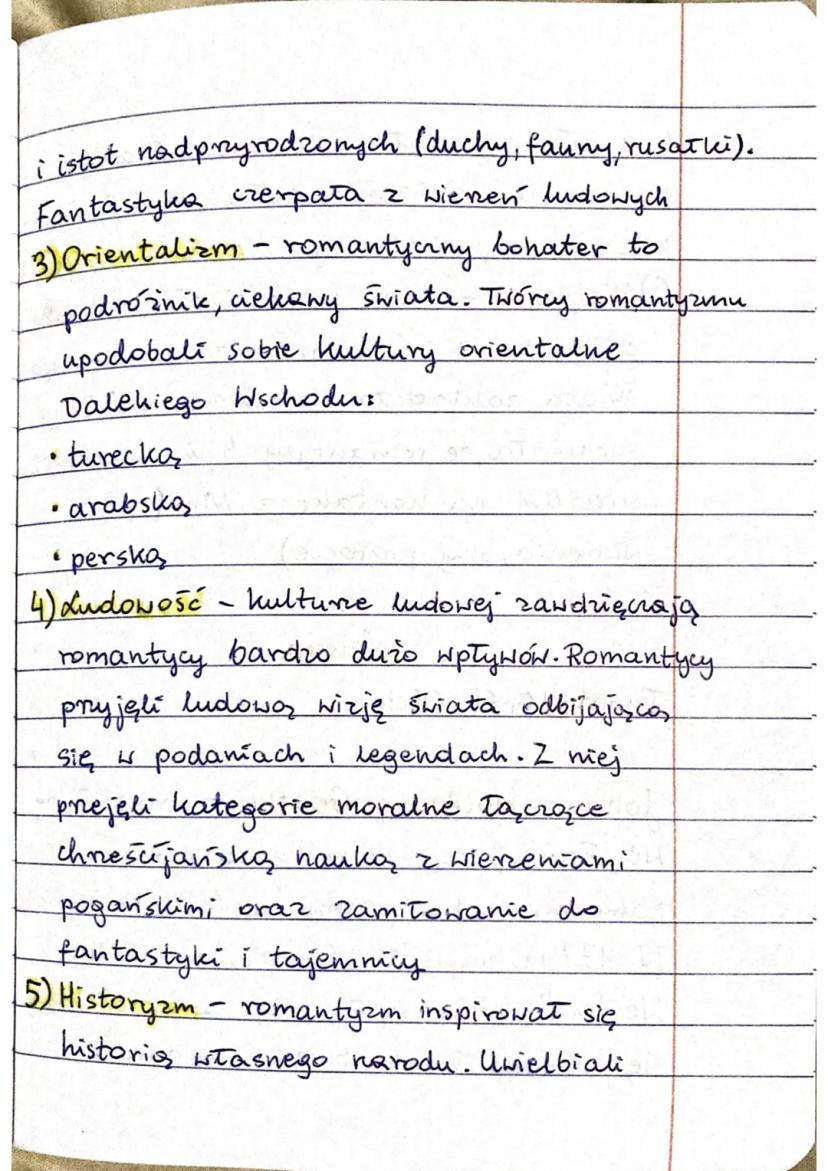 i istot nadprzyrodzonych (duchy, fauny, rusałki).
Fantastyka czerpała z wierzeń ludowych
3) Orientalizm - romantyczny bohater to
podróżnik, ciekawy świata. Twórcy romantyzmu
upodobali sobie kultury orientalne
Dalekiego Wschodu:
• turecką
• arabską
• perską
4) Ludowość - kulturze ludowej zawdzięczają
romantycy bardzo dużo wpływów. Romantycy
przyjęli ludową wizję świata odbijającą
się w podaniach i legendach. Z niej
przejęli kategorie moralne łączące
chrześcijańską nauką z wierzeniami
pogańskimi oraz zamiłowanie do
fantastyki i tajemnicy
5) Historyzm - romantyzm inspirował się
historią własnego narodu. Uwielbiali